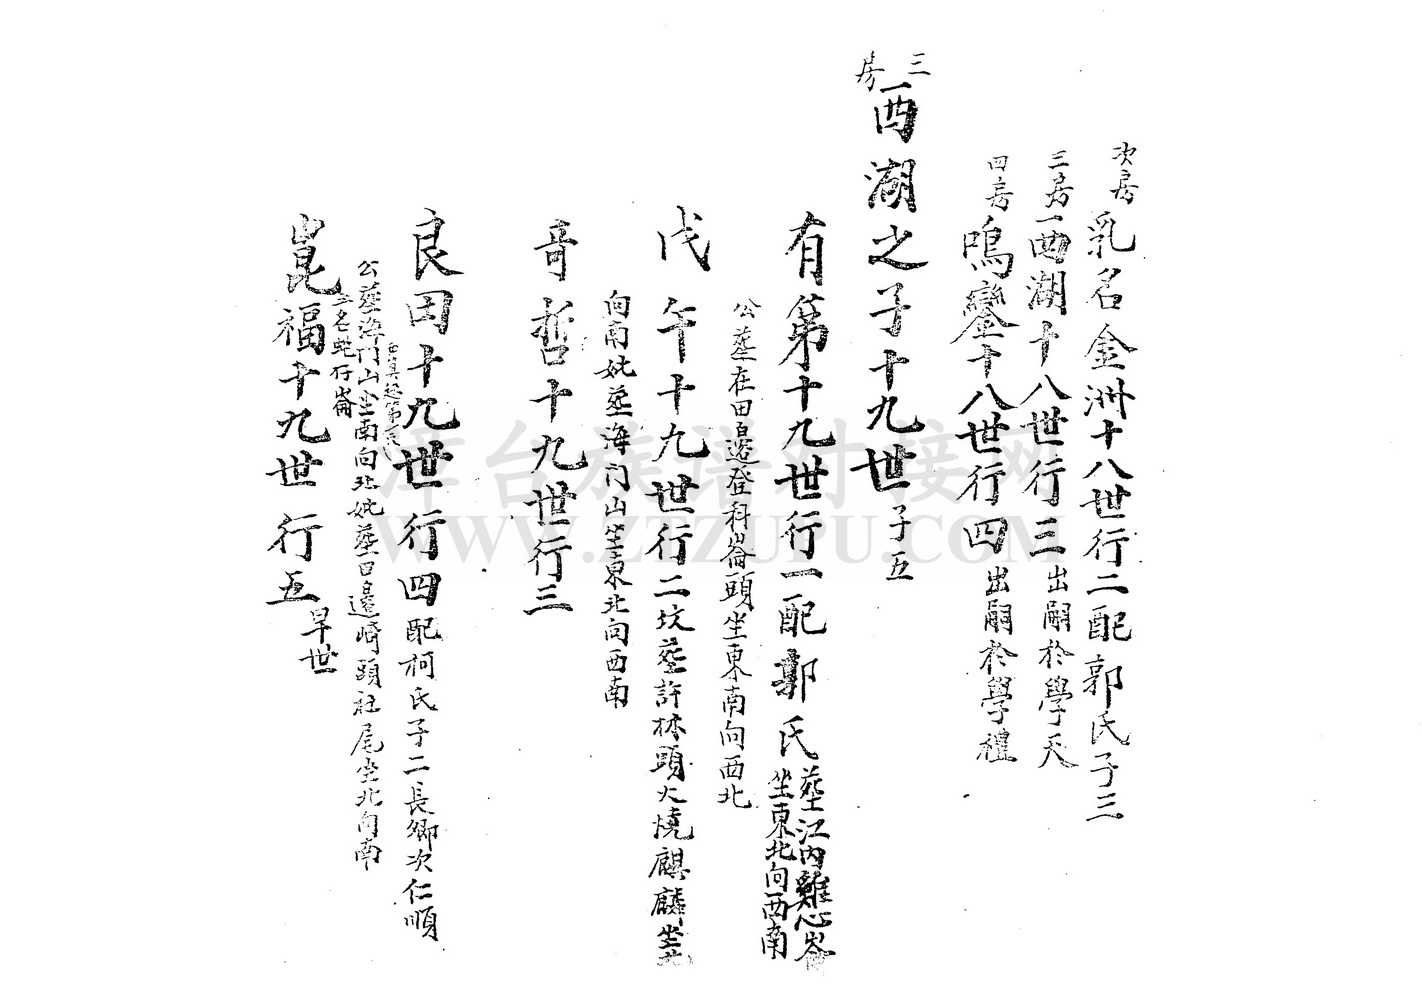 次房 乳名金洲十八世行二配郭氏子三
三房 西湖十八世行三 出嗣於學天
四房 鳴鑾十八世行四 出嗣於學禮
三房 西湖之子十九世 子五
有第十九世行一配郭氏 葬江内雞心崙
坐東北向西南
公葬在田邊登科崙頭坐東南向西北
戊午十九世行二坟葬許林頭火燒麒麟坐北
向南妣葬海门山坐東北向西南
哥哲十九世行三
良田十九世行四配柯氏子二長卿次仁順
公葬海门山坐南向北妣葬田邊崎頭社尾坐北向南
土名蛇仔崙
崑福十九世行五 早世
漳台族谱对接网
WWW.ZTZUPU.COM